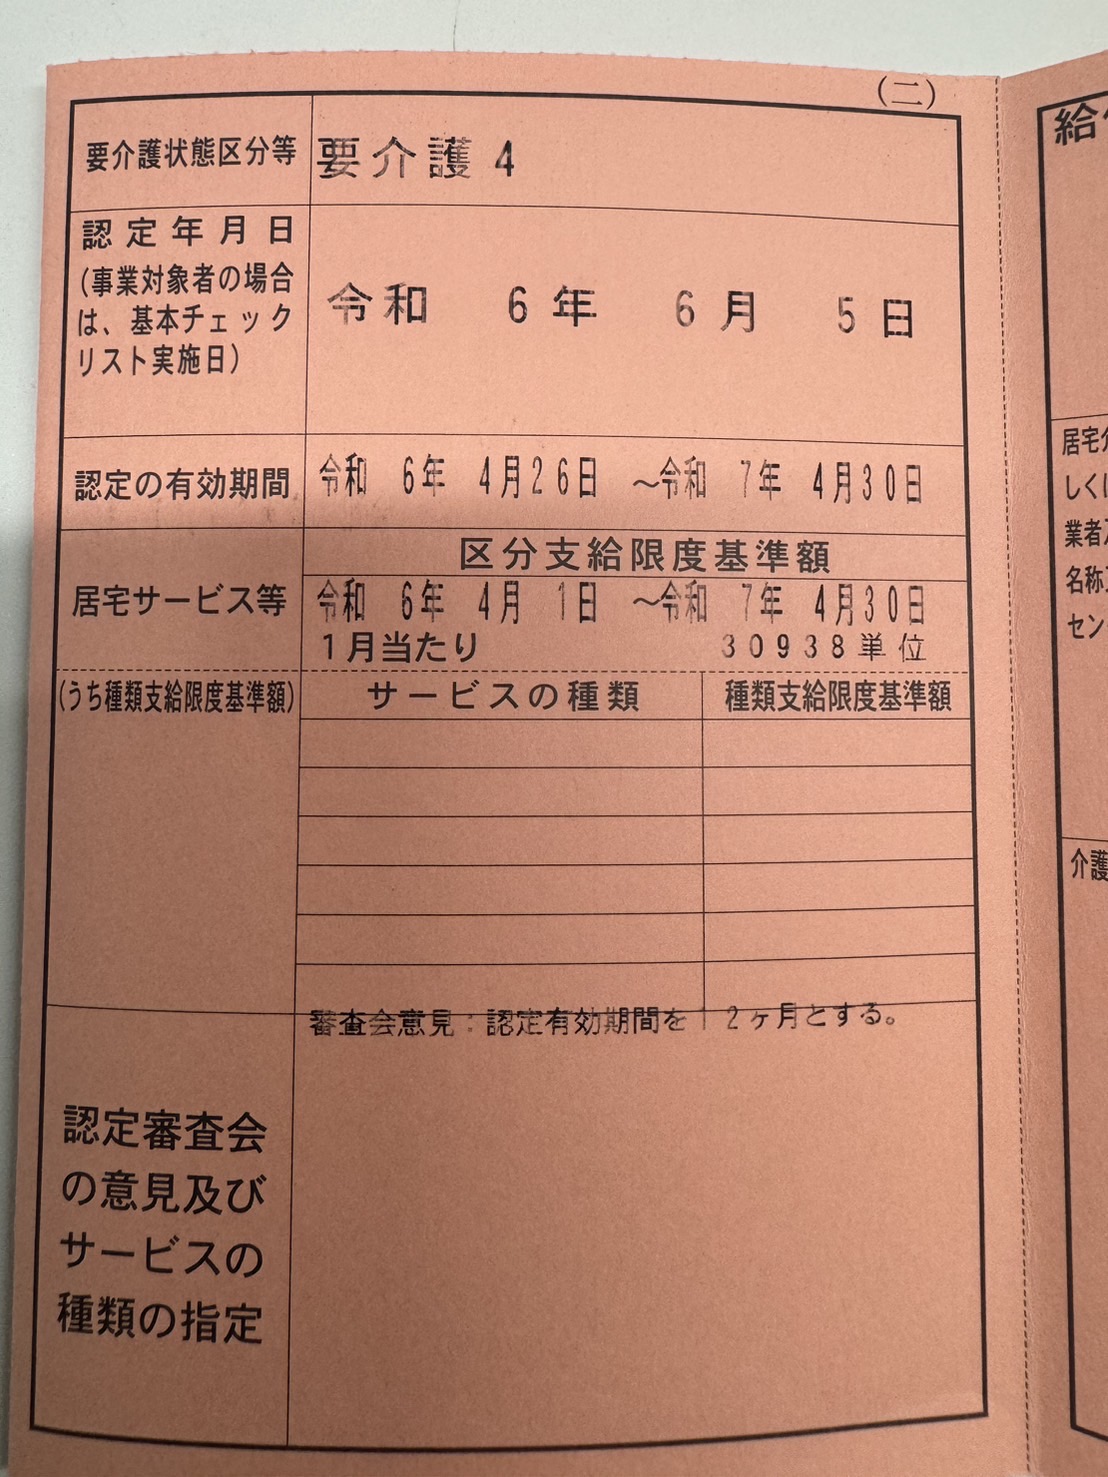 (二)
要介護状態区分等 要介護 4
認定年月日
(事業対象者の場合
は、基本チェック
リスト実施日)
令和 6年 6月 5日
認定の有効期間 令和 6年 4月26日 ～令和 7年 4月30日
区分支給限度基準額
居宅サービス等 令和 6年 4月 1日 ～令和 7年 4月30日
1月当たり 30938単位
(うち種類支給限度基準額) サービスの種類 種類支給限度基準額
審査会意見:認定有効期間を12ヶ月とする。
認定審査会
の意見及び
サービスの
種類の指定
給
居宅
しく
業者
名称
セン
介護